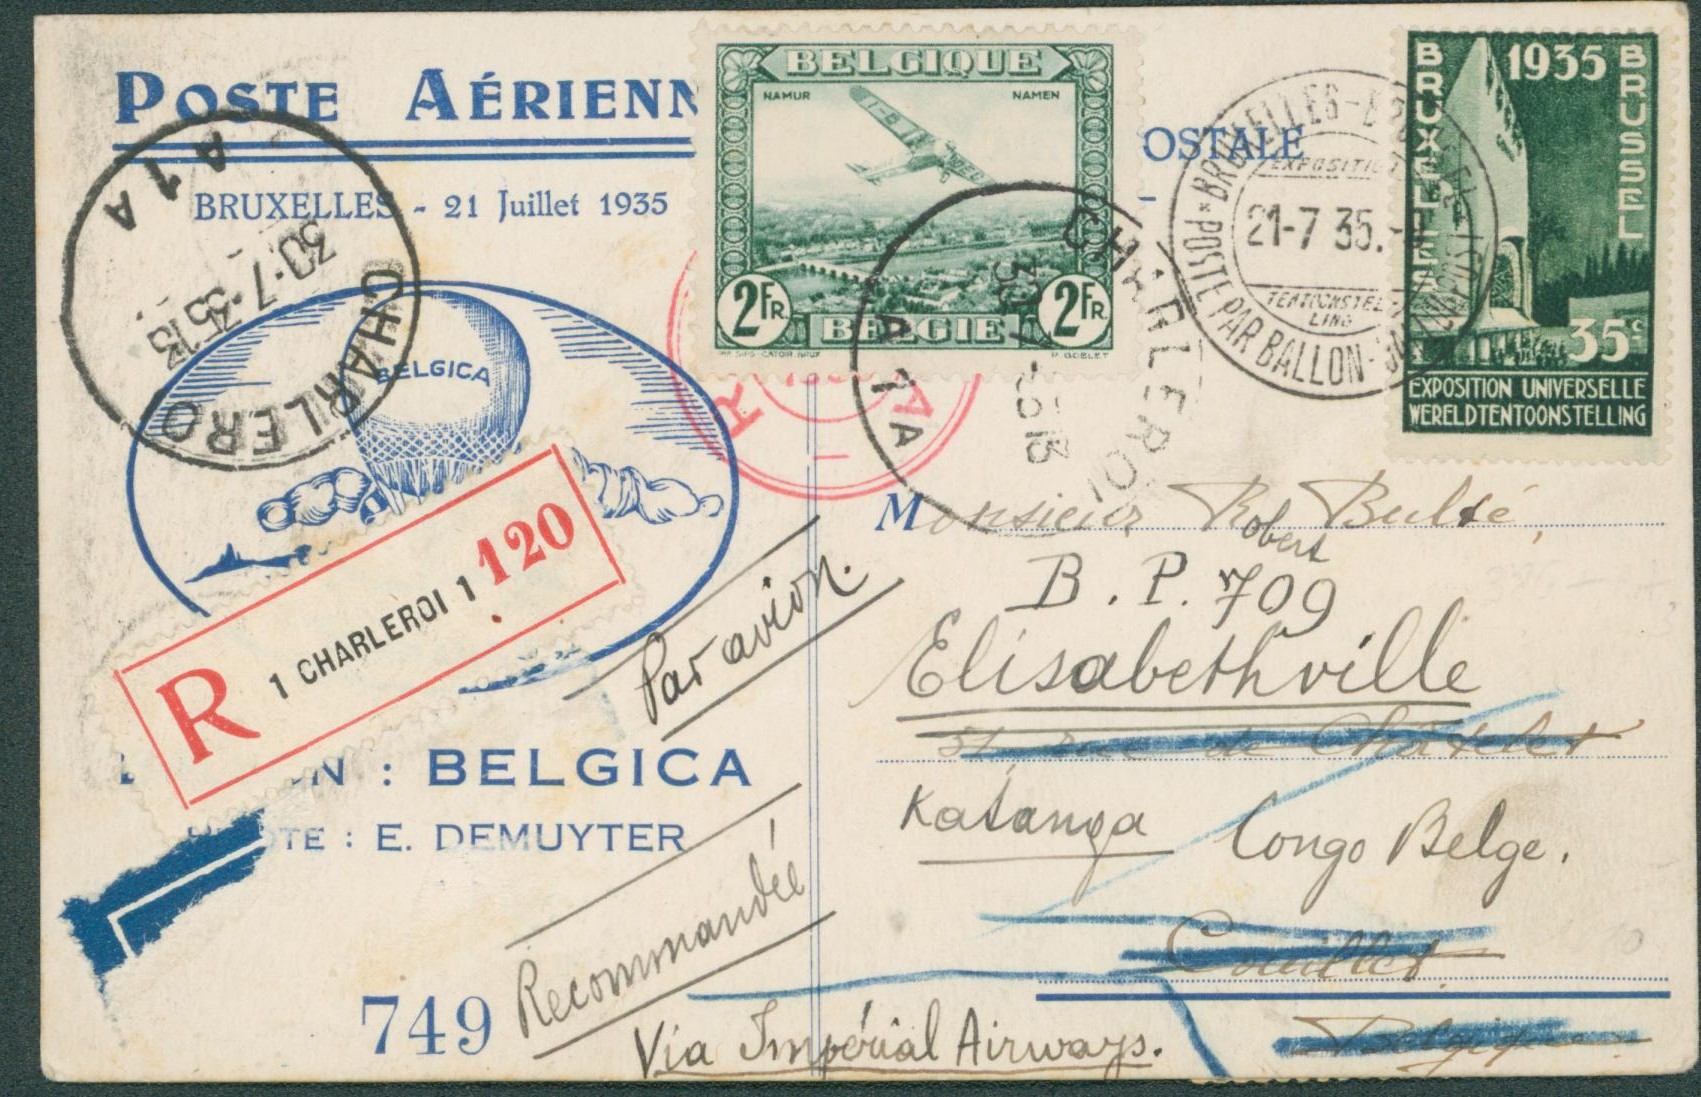 POSTE AÉRIENN
OSTALE
BRUXELLES - 21 Juillet 1935
BELGIQUE
NAMUR NAMEN
2FR. 2FR.
BELGIE
P. GOBELET
1935
BRUXELLES
BRUSSEL
35c
EXPOSITION UNIVERSELLE
WERELDTENTOONSTELLING
21-7 35.-
POSTE PAR BALLON
A 1 A
30.-7.-35 13
CHARLEROI
CHARLEROI
A 1 A
BELGICA
R 1 CHARLEROI 1 120
Par avion.
N : BELGICA
TE : E. DEMUYTER
749
Recommandée
Via Impérial Airways.
Monsieur Robert Bulté,
B. P. 709
Elisabethville
51 rue de Châtelet
Katanga Congo Belge.
Couillet
Belgique